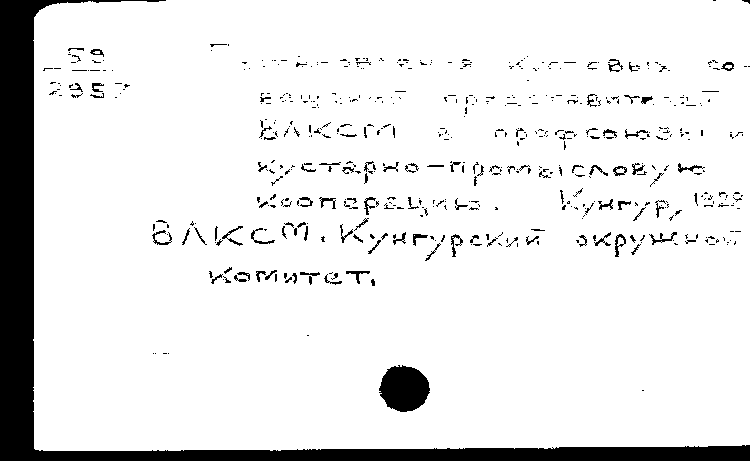 59
2957
Постановления кустовых со-
вещаний представителей
ВЛКСМ в профсоюзы и
кустарно-промысловую
кооперацию. Кунгур, 1928
ВЛКСМ. Кунгурский окружной
комитет.